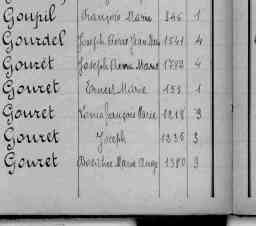 Goupil François Marie 346 1
Gourdel Joseph Pierre Jean 1541 4
Gouret Joseph Pierre Marie 4
Gouret Ernest Marie 155 1
Gouret Louis François Marie 1218 3
Gouret Joseph 1236 3
Gouret Marie Ange 1380 3